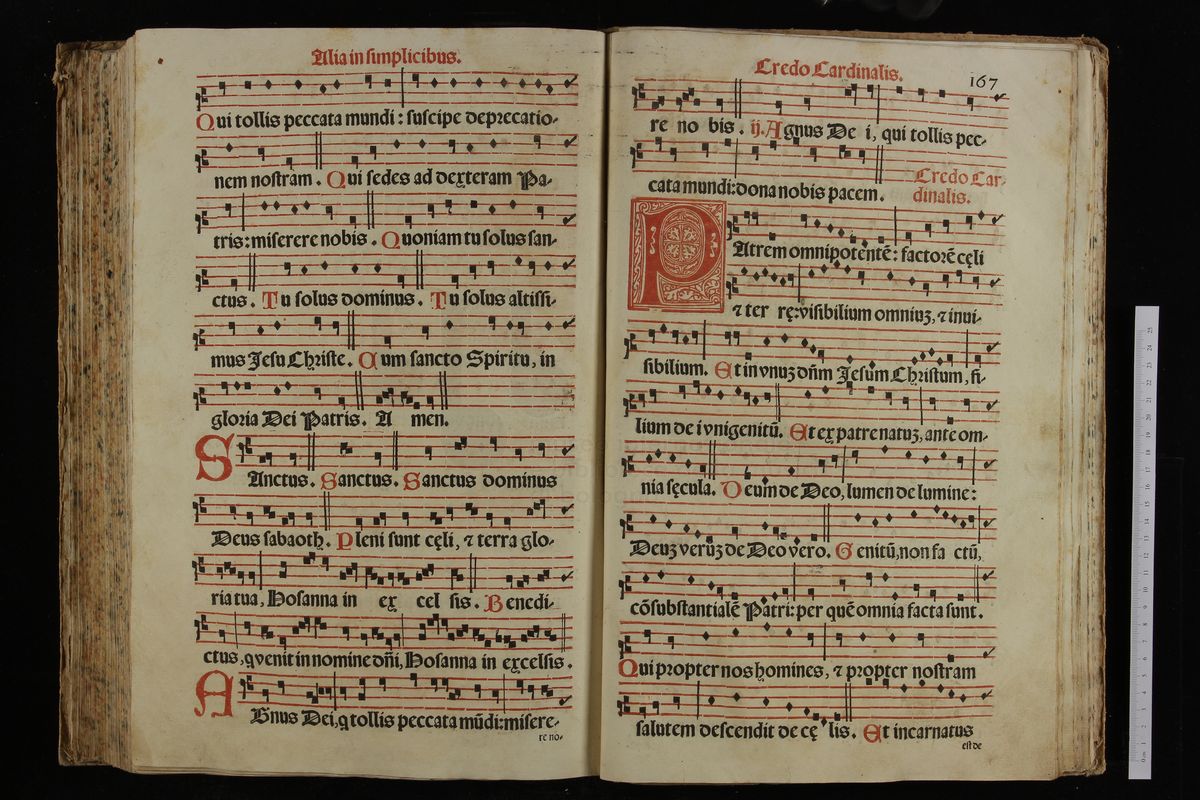 Alia in simplicibus.
Qui tollis peccata mundi : suscipe deprecatio-
nem nostram . Qui sedes ad dexteram Pa-
tris : miserere nobis . Quoniam tu solus san-
ctus . Tu solus dominus . Tu solus altissi-
mus Jesu Christe . Cum sancto Spiritu, in
gloria Dei Patris . A men.
SAnctus . Sanctus . Sanctus dominus
Deus sabaoth . Pleni sunt cęli, ⁊ terra glo-
ria tua, Hosanna in ex cel sis . Benedi-
ctus, q venit in nomine dñi, Hosanna in excelsis .
AGnus Dei, q tollis peccata mūdi : misere-
re no-
Credo Cardinalis.
167
re no bis . ij. Agnus De i, qui tollis pec-
cata mundi : dona nobis pacem .
Credo Car-
dinalis.
PAtrem omnipotentē : factorē cęli
⁊ ter rę : visibilium omniuʒ, ⁊ invi-
sibilium . Et in vnuʒ dñm Jesum Christum, fi-
lium de i vnigenitū . Et ex patre natuʒ, ante om-
nia sęcula . Deum de Deo, lumen de lumine :
Deuʒ verūʒ de Deo vero . Genitū, non fa ctū,
cōsubstantialē Patri : per quē omnia facta sunt .
Qui propter nos homines, ⁊ propter nostram
salutem descendit de cę lis . Et incarnatus
est de
0 cm 1 2 3 4 5 6 7 8 9 10 11 12 13 14 15 16 17 18 19 20 21 22 23 24 25